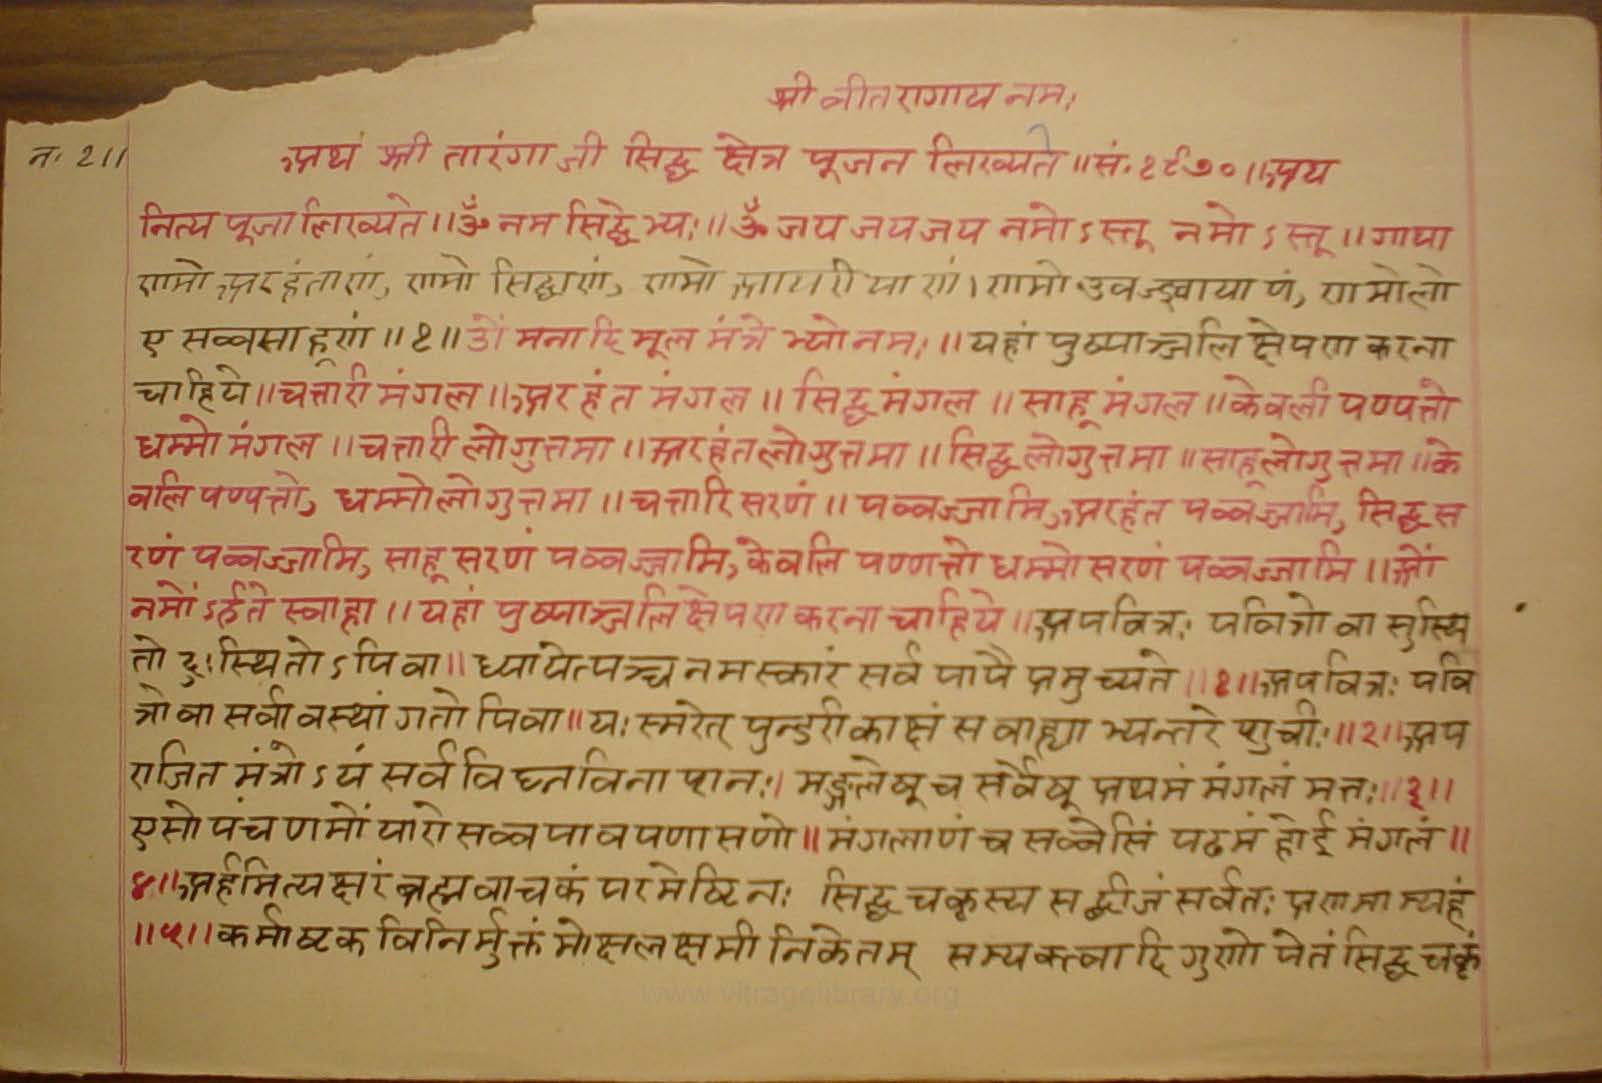 श्री वीतरागाय नमः
नः 2।। अथ श्री तारंगा जी सिद्ध क्षेत्र पूजन लिख्यते ॥ सं. १९७० ॥ अथ
नित्य पूजा लिख्यते ॥ ॐ नम सिद्धेभ्यः ॥ ॐ जय जय जय नमोऽस्तू नमोऽस्तू ॥ गाथा
णमो अरहंताणं, णमो सिद्धाणं, णमो आयरीयाणं। णमो उवज्झायाणं, णमो लो
ए सव्वसाहूणं ॥ १ ॥ ओं मनादि मूल मंत्रेभ्यो नमः ॥ यहां पुष्पाञ्जलि क्षेपण करना
चाहिये ॥ चत्तारी मंगल ॥ अरहंत मंगल ॥ सिद्ध मंगल ॥ साहू मंगल ॥ केवली पण्णत्तो
धम्मो मंगल ॥ चत्तारी लोगुत्तमा ॥ अरहंत लोगुत्तमा ॥ सिद्ध लोगुत्तमा ॥ साहू लोगुत्तमा ॥ के
वलि पण्णत्तो, धम्मो लोगुत्तमा ॥ चत्तारि सरणं ॥ पव्वज्जामि, अरहंत पव्वज्जामि, सिद्ध स
रणं पव्वज्जामि, साहू सरणं पव्वज्जामि, केवलि पण्णत्तो धम्मो सरणं पव्वज्जामि ॥ ओं
नमोंऽर्हते स्वाहा ॥ यहां पुष्पाञ्जलि क्षेपण करना चाहिये ॥ अपवित्रः पवित्रो वा सुस्थि
तो दुःस्थितोऽपि वा ॥ ध्यायेत्पञ्च नमस्कारं सर्व पापै प्रमुच्यते ॥ १ ॥ अपवित्रः पवि
त्रो वा सर्वावस्थां गतो पिवा ॥ यः स्मरेत् पुन्डरीकाक्षं स वाह्याभ्यन्तरे शुचीः ॥ २ ॥ अप
राजित मंत्रोऽयं सर्व विघ्न विनाशनः। मङ्गलेषू च सर्वेषू प्रथमं मंगलं मतः ॥ ३ ॥
एसो पंच णमोंयारो सव्व पावपणासणो ॥ मंगलाणं च सव्वेसिं पढमं होई मंगलं ॥
४ ॥ अर्हमित्यक्षरं ब्रह्म वाचकं परमेष्टिनः सिद्ध चकृस्य सद्बीजं सर्वतः प्रणमाम्यहं
॥ ५ ॥ कर्माष्टक विनिर्मुक्तं मोक्ष लक्षमी निकेतम् सम्यक्त्वादि गुणोपेतं सिद्ध चकृं
www.vitragelibrary.org